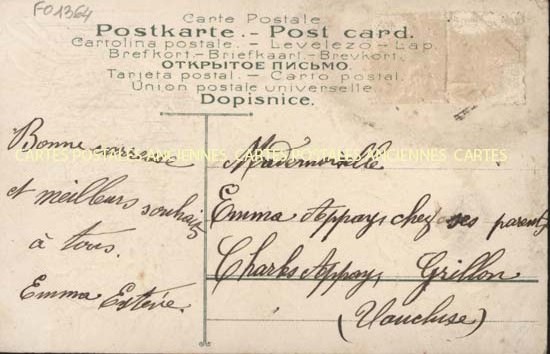 FO1364
Carte Postale
Postkarte. - Post card.
Cartolina postale. - Levelezo-Lap.
Brefkort.-Briefkaart.-Brevkort.
ОТКРЫТОЕ ПИСЬМО.
Tarjeta postal. - Carto postal.
Union postale universelle.
Dopisnice.
Bonne année
et meilleurs souhaits
à tous.
Emma Estève.
Mademoiselle
Emma Appay, chez ses parents
Charles Appay, Grillon
(Vaucluse)
CARTES POSTALES ANCIENNES CARTES POSTALES ANCIENNES CARTES